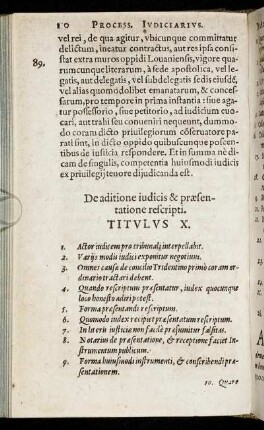 10 PROCESS. IVDICIARIVS.
vel rei, de qua agitur, vbicunque committatur
delictum, ineatur contractus, aut res ipsa consi-
stat extra muros oppidi Louaniensis, vigore qua-
89. rumcunque literarum, à sede apostolica, vel le-
gatis, aut delegatis, vel subdelegatis sedis eiusdē,
vel alias quomodolibet emanatarum, & conces-
sarum, pro tempore in prima instantia: siue aga-
tur possessorio, siue petitorio, ad iudicium euo-
cari, aut trahi seu conueniri nequeunt, dummo-
do coram dicto priuilegiorum cōseruatore pa-
rati sint, in dicto oppido quibuscunque poscen-
tibus de iustitia respondere. Et in summa ne di-
cam de singulis, competentia huiusmodi iudicis
ex priuilegij tenore dijudicanda est.
De aditione iudicis & præsen-
tatione rescripti.
TITVLVS X.
1. Actor iudicem pro tribunali interpellabit.
2. Varijs modis iudici exponitur negotium.
3. Omnes causæ de concilio Tridentino primo coram or-
dinario tractari debent.
4. Quando rescriptum præsentatur, iudex quocunque
loco honesto adiri potest.
5. Forma præsentandi rescriptum.
6. Quomodo iudex recipit præsentatum rescriptum.
7. In literis iustitiæ non facilè præsumitur falsitas.
8. Notarius de præsentatione, & receptione faciet In-
strumentum publicum.
9. Forma huiusmodi instrumenti, & conscribendi præ-
sentationem.
10. Quare